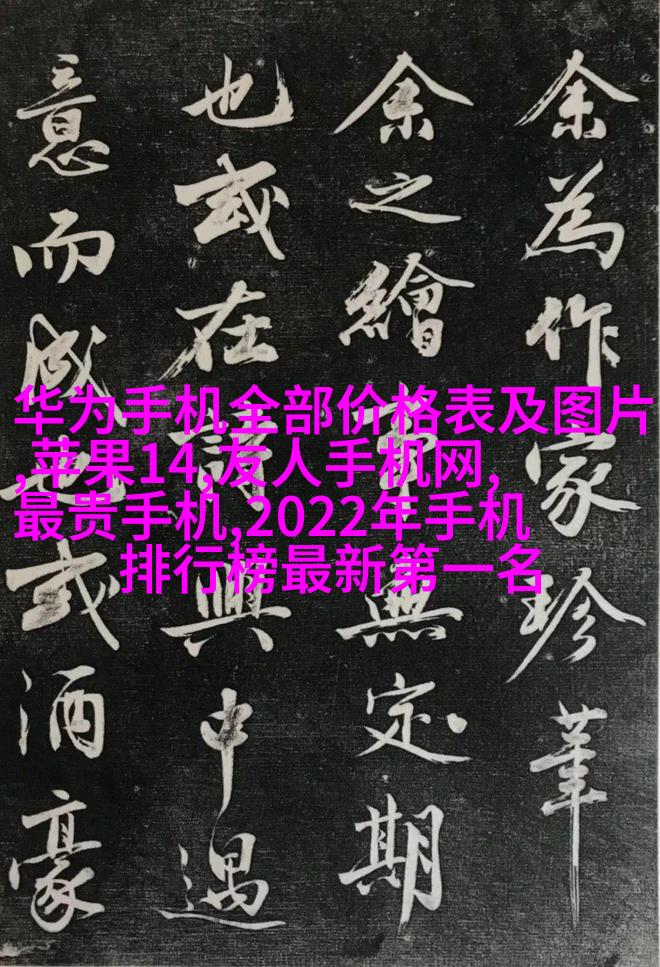 余為作家珍
余之繪無定期
也或在興中遇
意而成也或酒豪
华为手机全部价格表及图片
,苹果14,友人手机网,
最贵手机,2022年手机
排行榜最新第一名